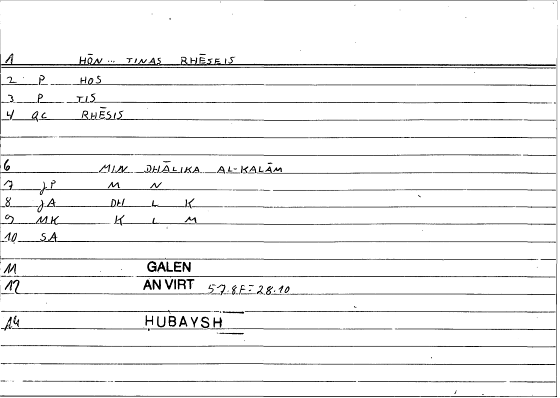 1 HŌN... TINAS RHĒSEIS
2 P HOS
3 P TIS
4 QC RHĒSIS
6 MIN DHĀLIKA AL-KALĀM
7 JP M N
8 JA DH L K
9 MK K L M
10 SA
11 GALEN
12 AN VIRT 57.8F=28.10
14 HUBAYSH